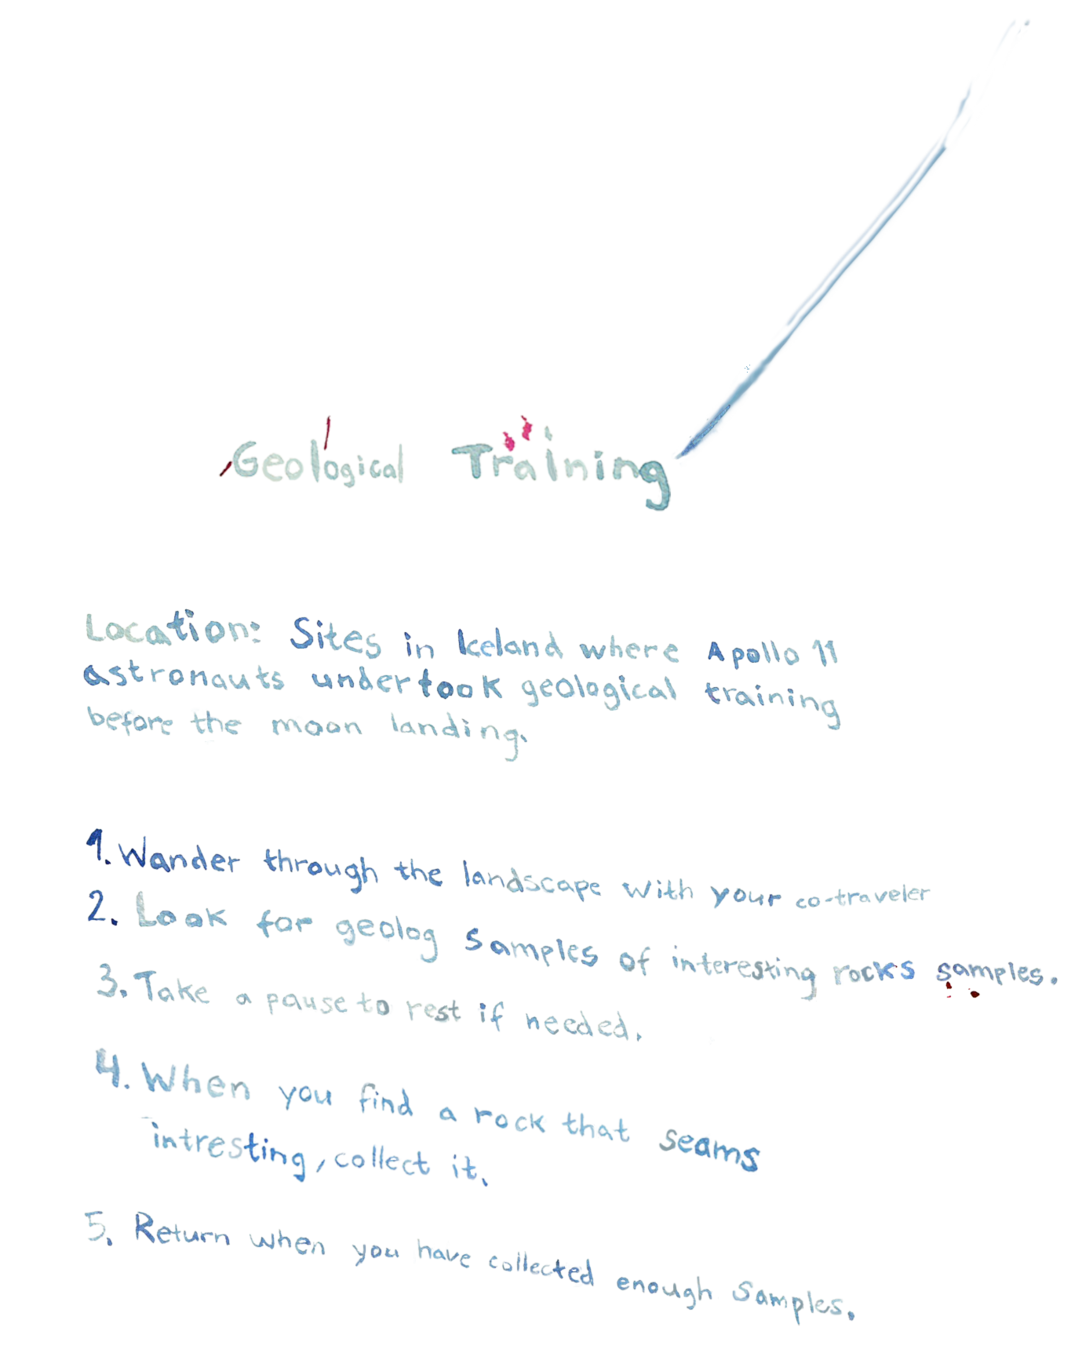 Geological Training
Location: Sites in Iceland where Apollo 11
astronauts undertook geological training
before the moon landing.
1. Wander through the landscape with your co-traveler
2. Look for geolog samples of interesting rocks samples.
3. Take a pause to rest if needed.
4. When you find a rock that seams
intresting, collect it.
5. Return when you have collected enough samples.